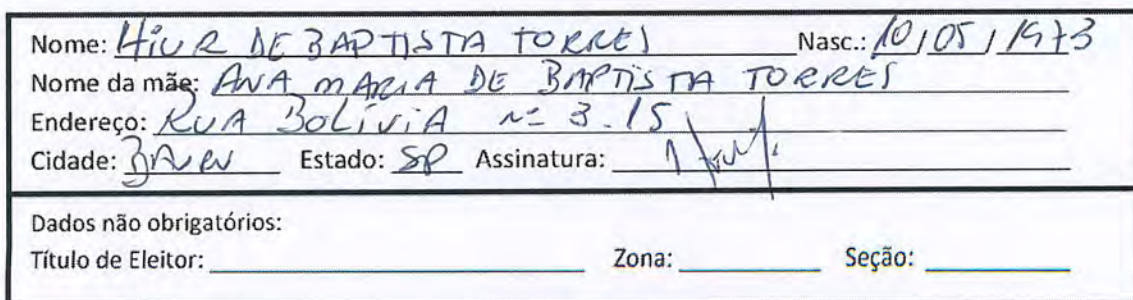 Nome: HIUR DE BAPTISTA TORRES Nasc.: 10/05/1973
Nome da mãe: ANA MARIA DE BAPTISTA TORRES
Endereço: RUA BOLÍVIA nº 3.15
Cidade: BAURU Estado: SP Assinatura:
Dados não obrigatórios:
Título de Eleitor: Zona: Seção: